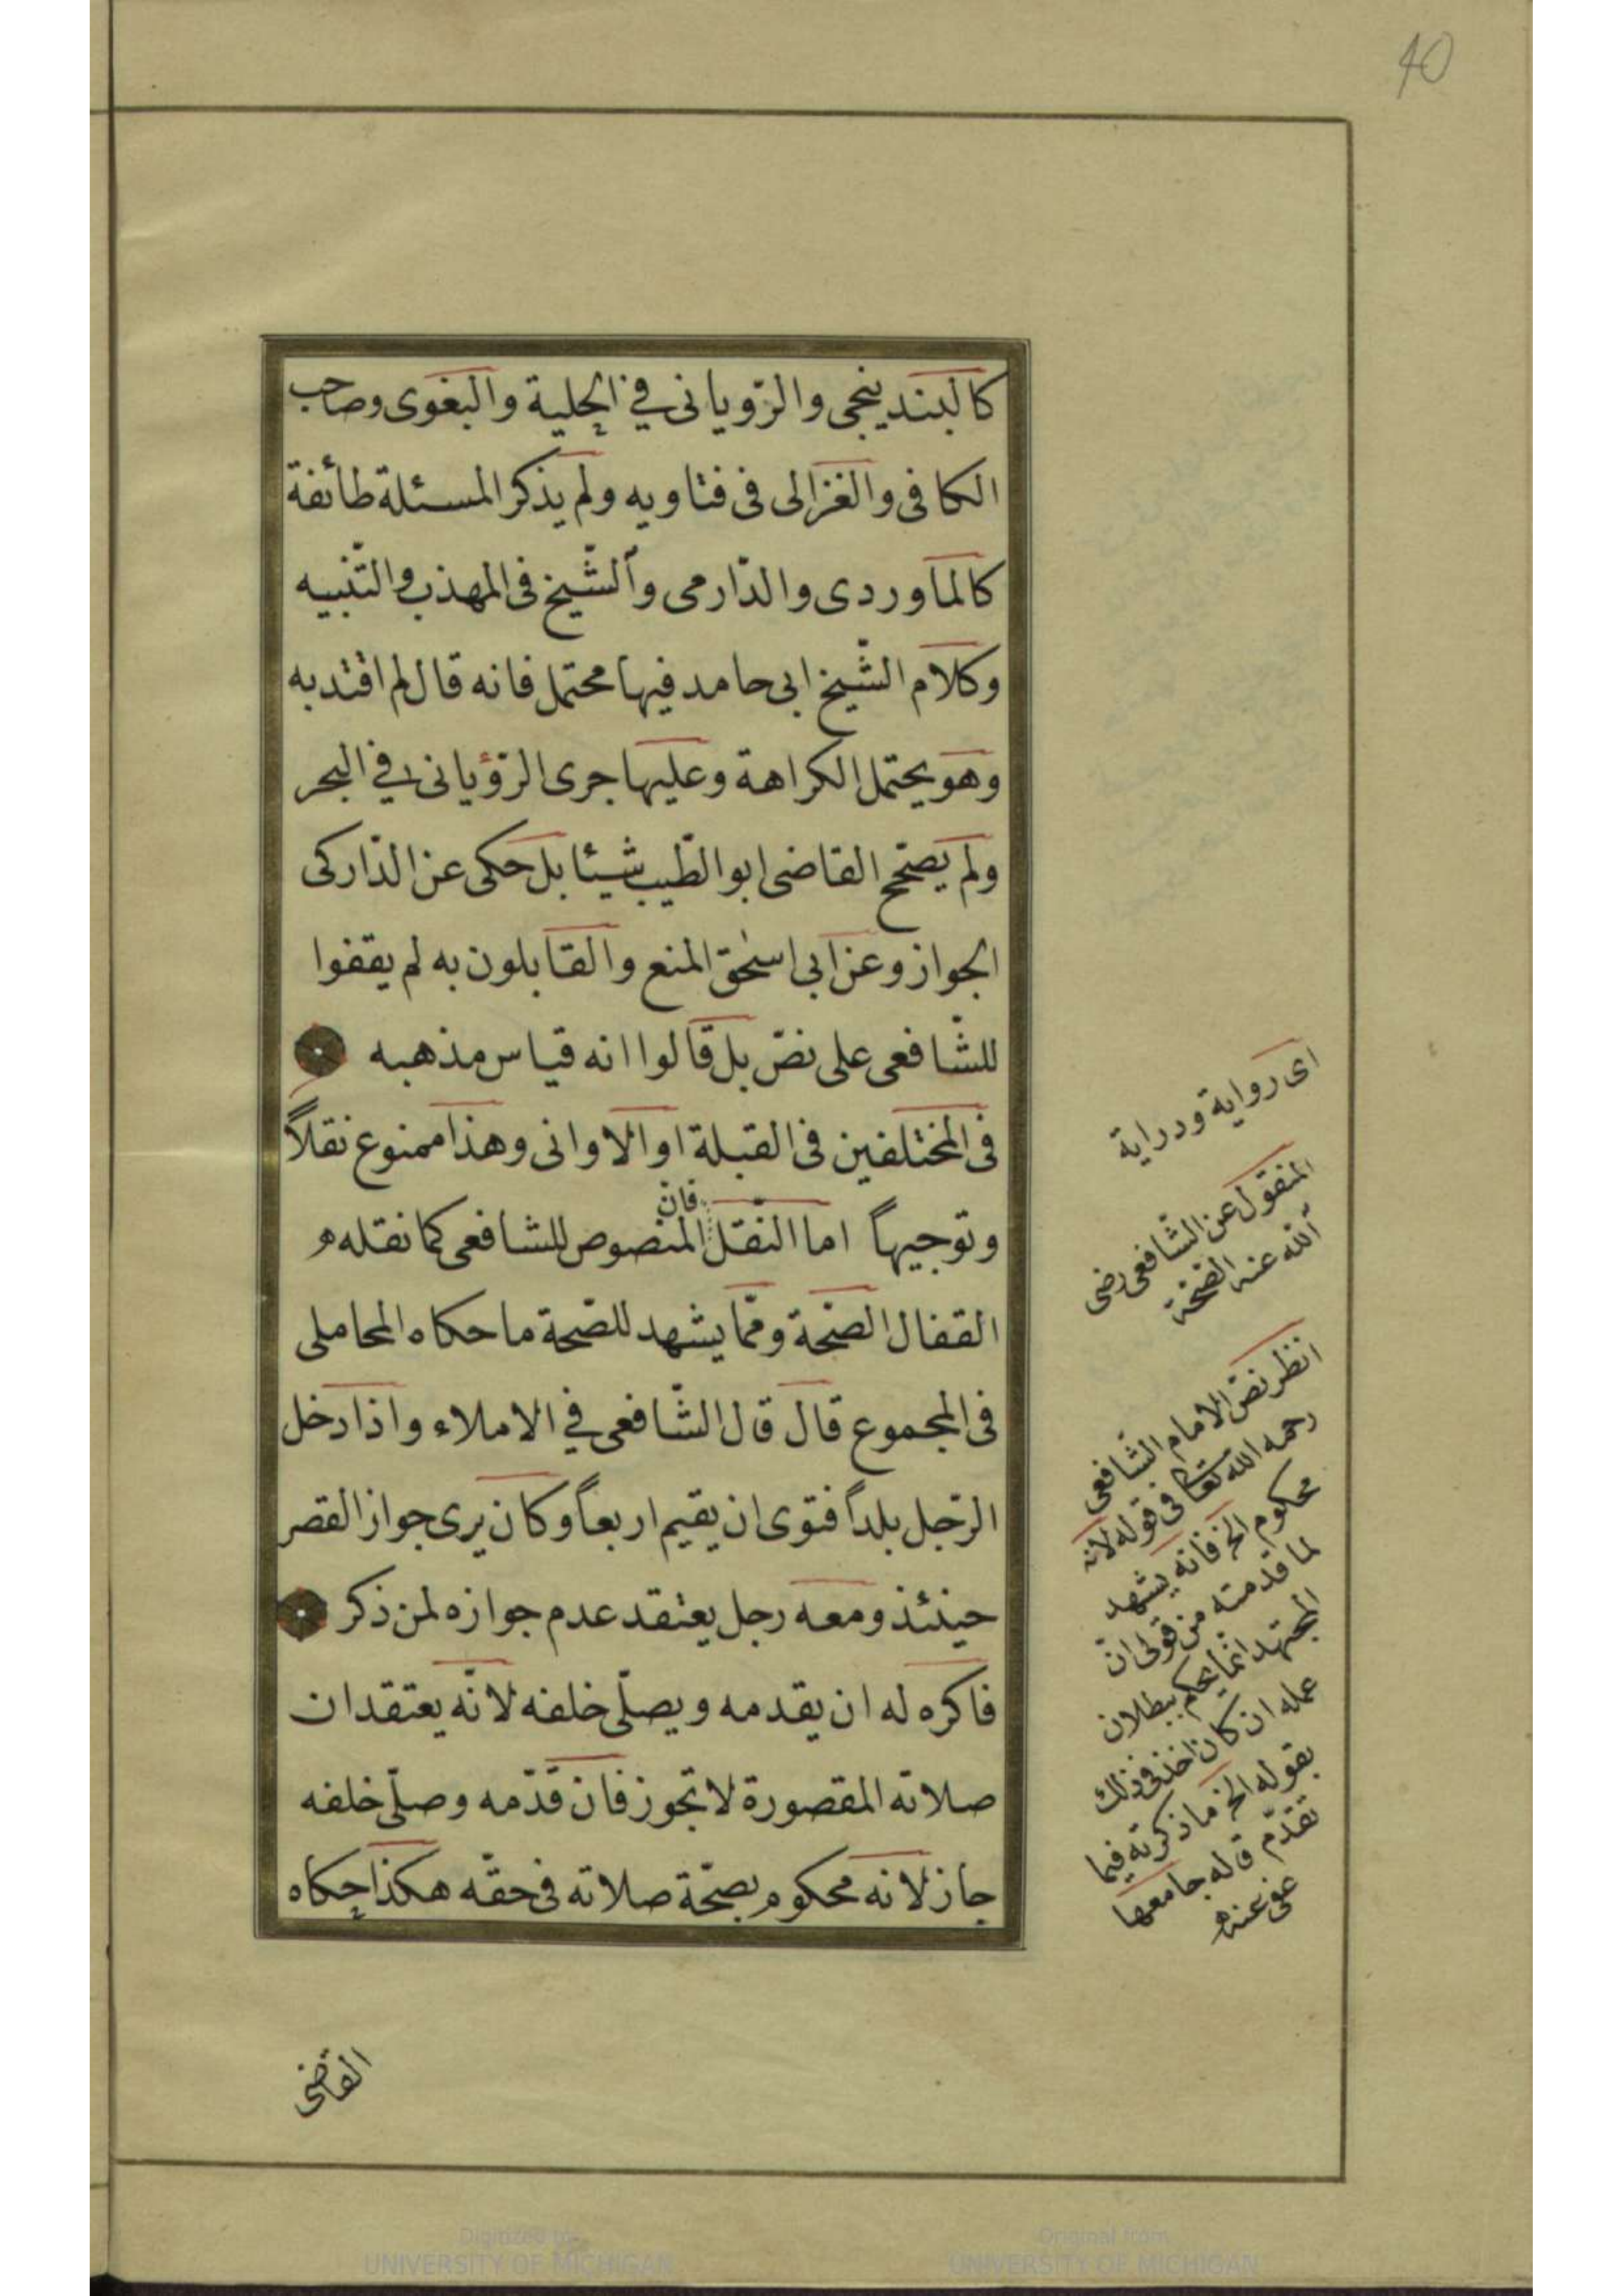 40
كالبندينجى والرّويانى في الحلية والبغوى وصاحب
الكافى والغزالى فى فتاويه ولم يذكر المسئلة طائفة
كالماوردى والدّارمى والشّيخ فى المهذب والتّنبيه
وكلام الشّيخ ابى حامد فيها محتمل فانه قال لم اقتد به
وهو يحتمل الكراهة وعليها جرى الرّؤيانى في البحر
ولم يصحّح القاضى ابو الطّيب شيئا بل حكى عن الدّاركى
الجواز وعن ابى اسحٰق المنع والقايلون به لم يقفوا
للشّافعى على نصّ بل قالوا انه قياس مذهبه
فى المختلفين فى القبلة او الاوانى وهذا ممنوع نقلاً
وتوجيهاً اما النّقل فان المنصوص للشافعى كما نقله
القفال الصّحّة وممّا يشهد للصّحة ما حكاه المحاملى
فى المجموع قال قال الشّافعى في الاملاء واذا دخل
الرّجل بلداً فنوى ان يقيم اربعاً وكان يرى جواز القصر
حينئذ ومعه رجل يعتقد عدم جوازه لمن ذكر
فاكره له ان يقدمه ويصلّى خلفه لانّه يعتقد ان
صلاته المقصورة لا تجوز فان قدّمه وصلّى خلفه
جاز لانه محكوم بصحّة صلاته فى حقّه هكذا حكاه
اى رواية ودراية
المنقول عن الشّافعى رضى
الله عنه الصّحّة
انظر نصّ الامام الشّافعى
رحمه الله تعالى فى قوله لانه
محكوم الخ فانه يشهد
لما قدمته من قولى انّ
المجتهد انما يحكم ببطلان
عمله ان كان اخذ فى ذلك
بقوله الخ ما ذكرته فيما
تقدّم قاله جامعها
عفى عنه
القاضى
Digitized by
UNIVERSITY OF MICHIGAN
Original from
UNIVERSITY OF MICHIGAN